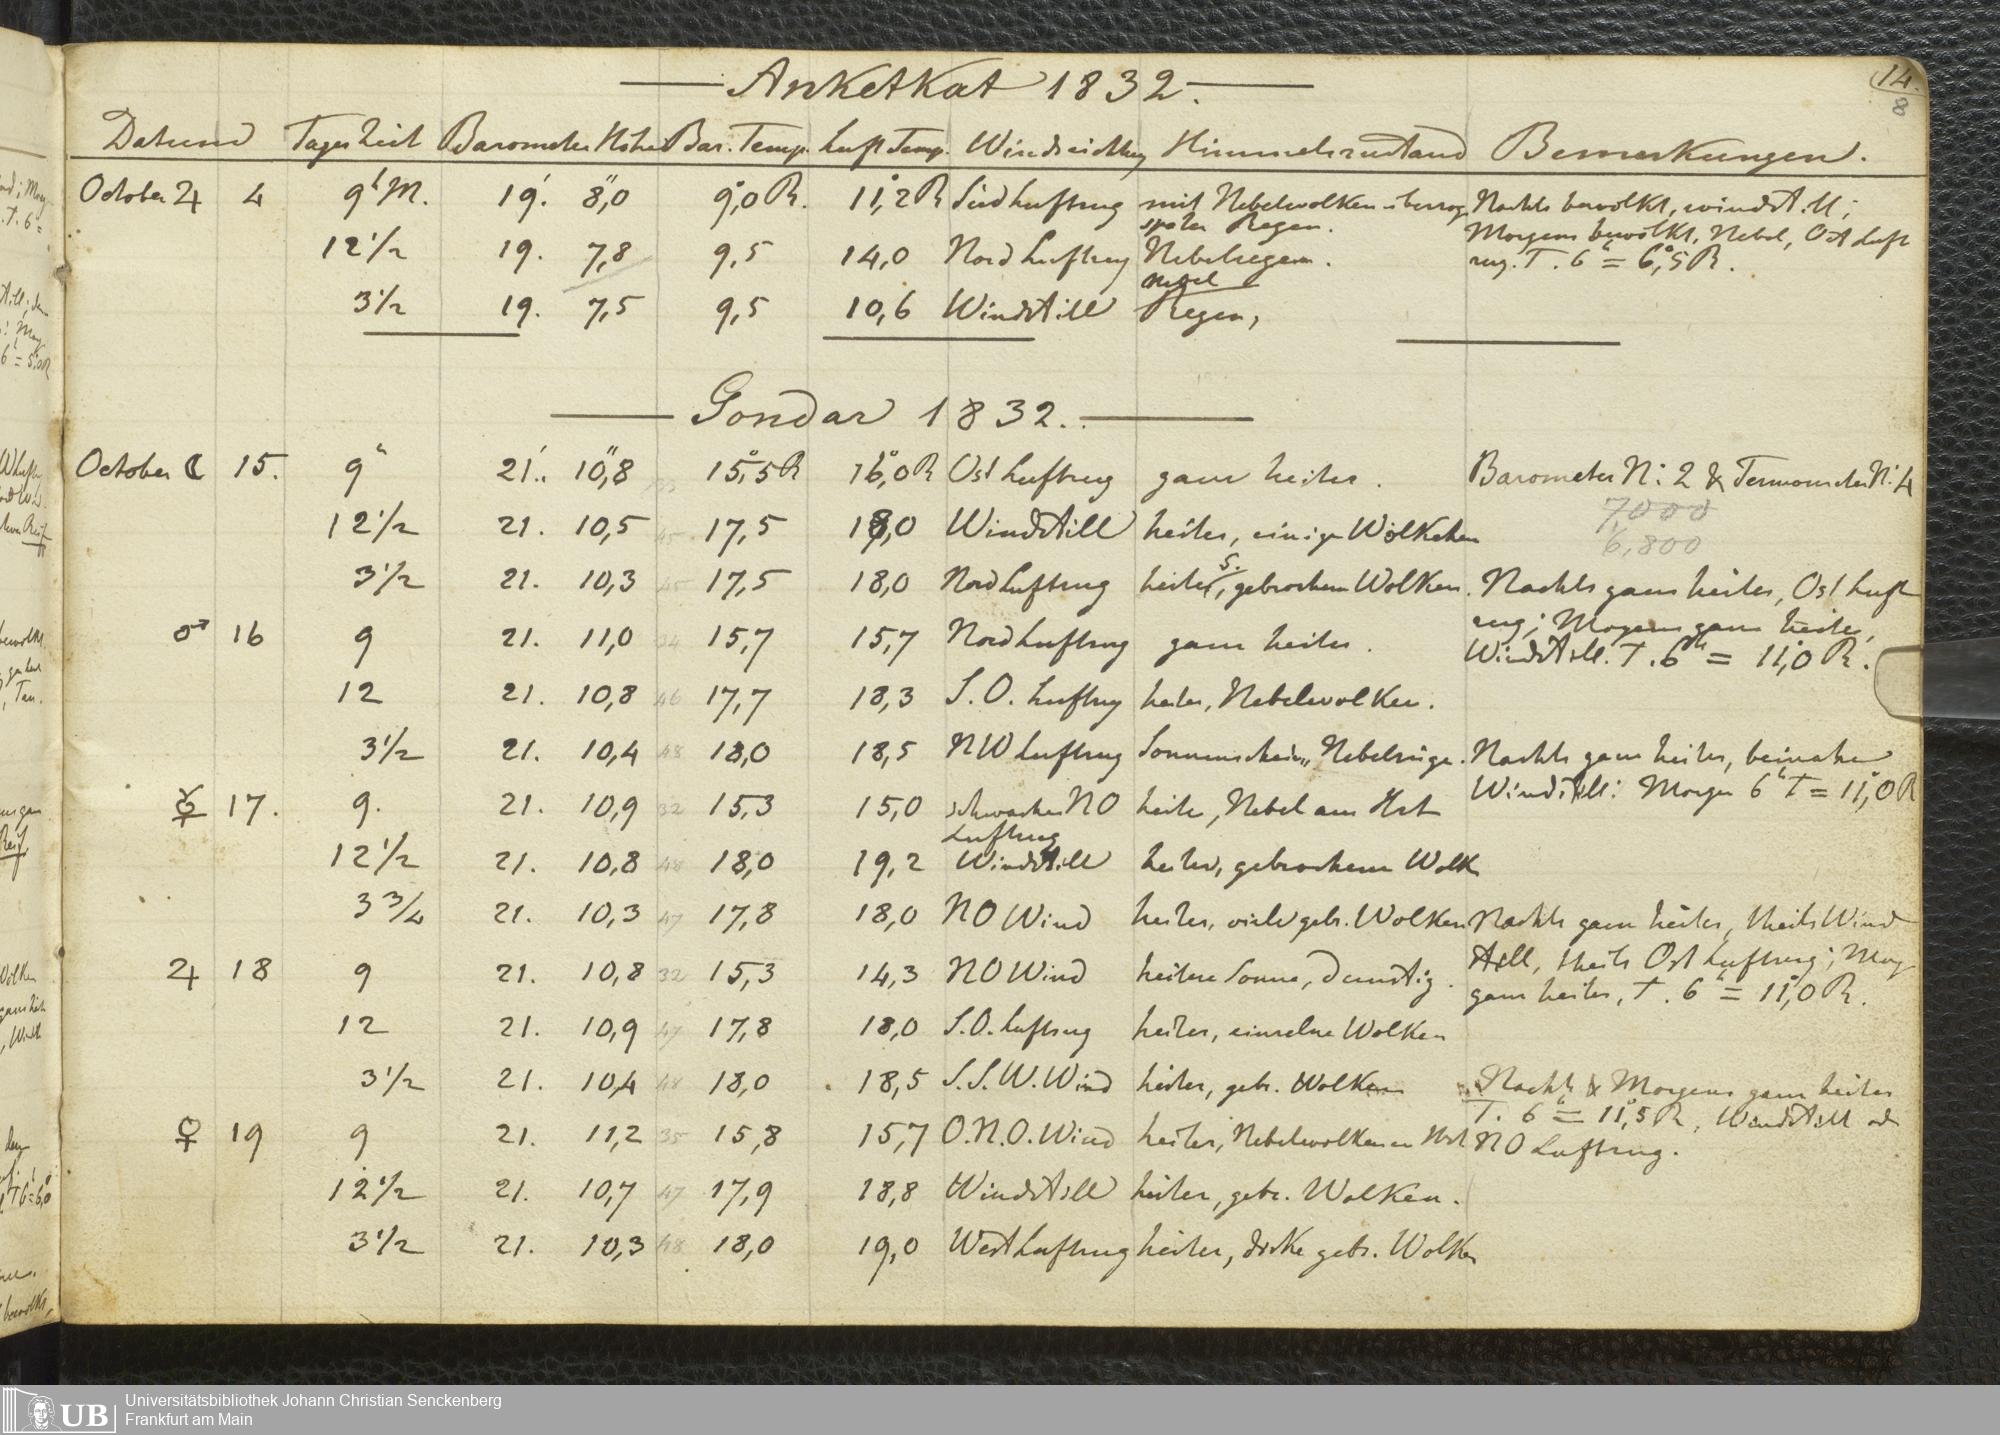 14.
8
Anketkat 1832.
Datum Tageszeit Barometer Höhe Bar. Temp. Luft Temp. Windrichtung Himmelszustand Bemerkungen.
October ♃ 4 9h M. 19.' 8,"0 9,°0 R. 11,°2 R Süd Luftzug mit Nebelwolken überzog. Nachts bewölkt, windstill;
später Regen. Morgens bewölkt, Nebel, Ost Luft
12 1/2 19. 7,8 9,5 14,0 Nord Luftzug Nebelregen. zug. T. 6h = 6,°5 R.
Nebel
3 1/2 19. 7,5 9,5 10,6 Windstill Regen,
Gondar 1832.
October ☾ 15. 9h 21.' 10,"8 33 15,°5 R 16,°0 R Ost Luftzug ganz heiter. Barometer N: 2 & Termometer N: 4
7,000
12 1/2 21. 10,5 45 17,5 18,0 Windstill heiter, einige Wölkchen
6,800
3 1/2 21. 10,3 45 17,5 18,0 Nord Luftzug heiter, gebrochene Wolken. Nachts ganz heiter, Ost Luft
zug; Morgens ganz heiter,
♂ 16 9 21. 11,0 34 15,7 15,7 Nord Luftzug ganz heiter. Windstill. T. 6h = 11,°0 R.
12 21. 10,8 46 17,7 18,3 S.O. Luftzug heiter, Nebelwolken.
3 1/2 21. 10,4 48 18,0 18,5 NW Luftzug Sonnenschein, Nebelzüge. Nachts ganz heiter, beinahe
Windstill: Morgen 6h T = 11,°0 R
☿ 17. 9. 21. 10,9 32 15,3 15,0 schwacher NO heiter, Nebel am Hrt
Luftzug
12 1/2 21. 10,8 48 18,0 19,2 Windstill heiter, gebrochene Wolk
3 3/4 21. 10,3 47 17,8 18,0 NO Wind heiter, viele gebr. Wolken Nachts ganz heiter, theils Wind
still, theils Ost Luftzug; Morg
♃ 18 9 21. 10,8 32 15,3 14,3 NO Wind heitere Sonne, dunstig. ganz heiter, T. 6h = 11,°0 R.
12 21. 10,9 47 17,8 18,0 S.O. Luftzug heiter, einzelne Wolken
3 1/2 21. 10,4 48 18,0 18,5 S.S.W. Wind heiter, gebr. Wolken Nachts & Morgens ganz heiter
T. 6h = 11,°5 R, Windstill od
♀ 19 9 21. 11,2 35 15,8 15,7 O.N.O. Wind heiter, Nebelwolken NO Luftzug.
12 1/2 21. 10,7 47 17,9 18,8 Windstill heiter, gebr. Wolken.
3 1/2 21. 10,3 48 18,0 19,0 West Luftzug heiter, dicke gebr. Wolken
UB
Universitätsbibliothek Johann Christian Senckenberg
Frankfurt am Main